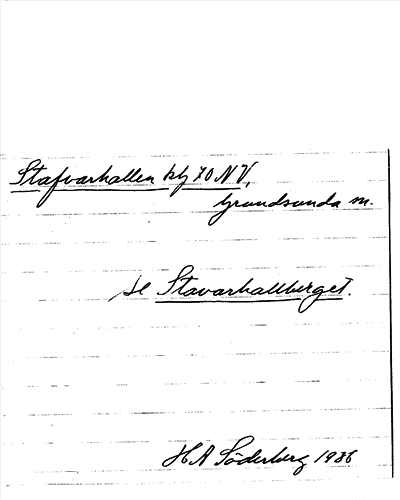 Stafvarhallen kbl 70 NV,
Grundsunda sn.
se Stavarhallberget.
H A Söderberg 1936